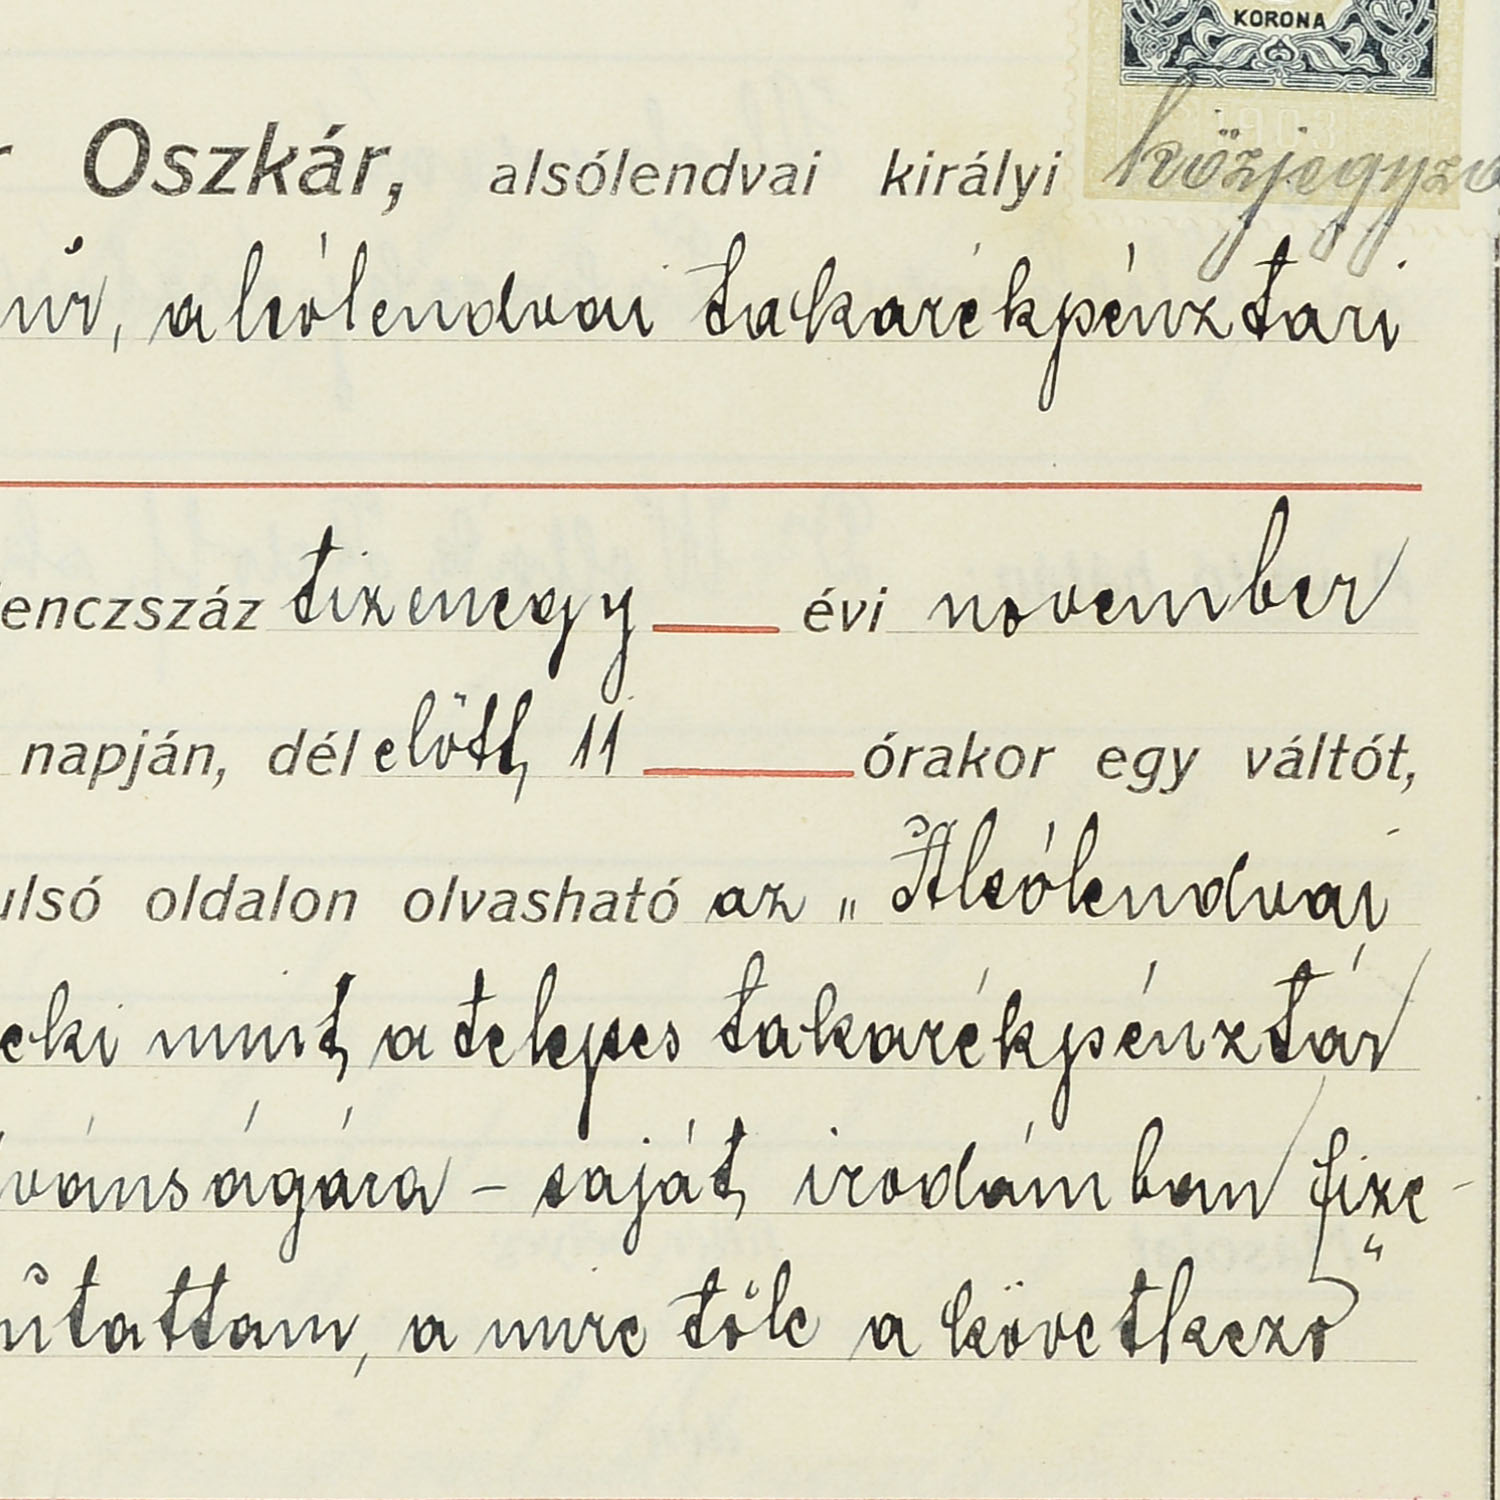 KORONA
1903
r Oszkár, alsólendvai királyi közjegyző
úr, alsólendvai takarékpénztári
lenczszáz tizenegy — évi november
napján, délelőtt 11 — órakor egy váltót,
ulsó oldalon olvasható az „Alsólendvai
eki mint a telepes takarékpénztár
ívánságára – saját irodámban fize-
utattam, a mire tőle a következő